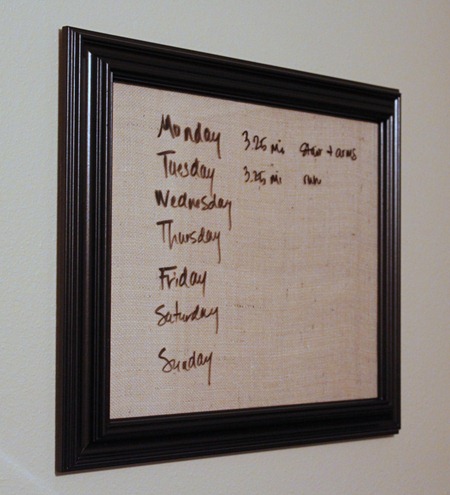 Monday 3.25 mi stair + arms
Tuesday 3.25 mi run
Wednesday
Thursday
Friday
Saturday
Sunday